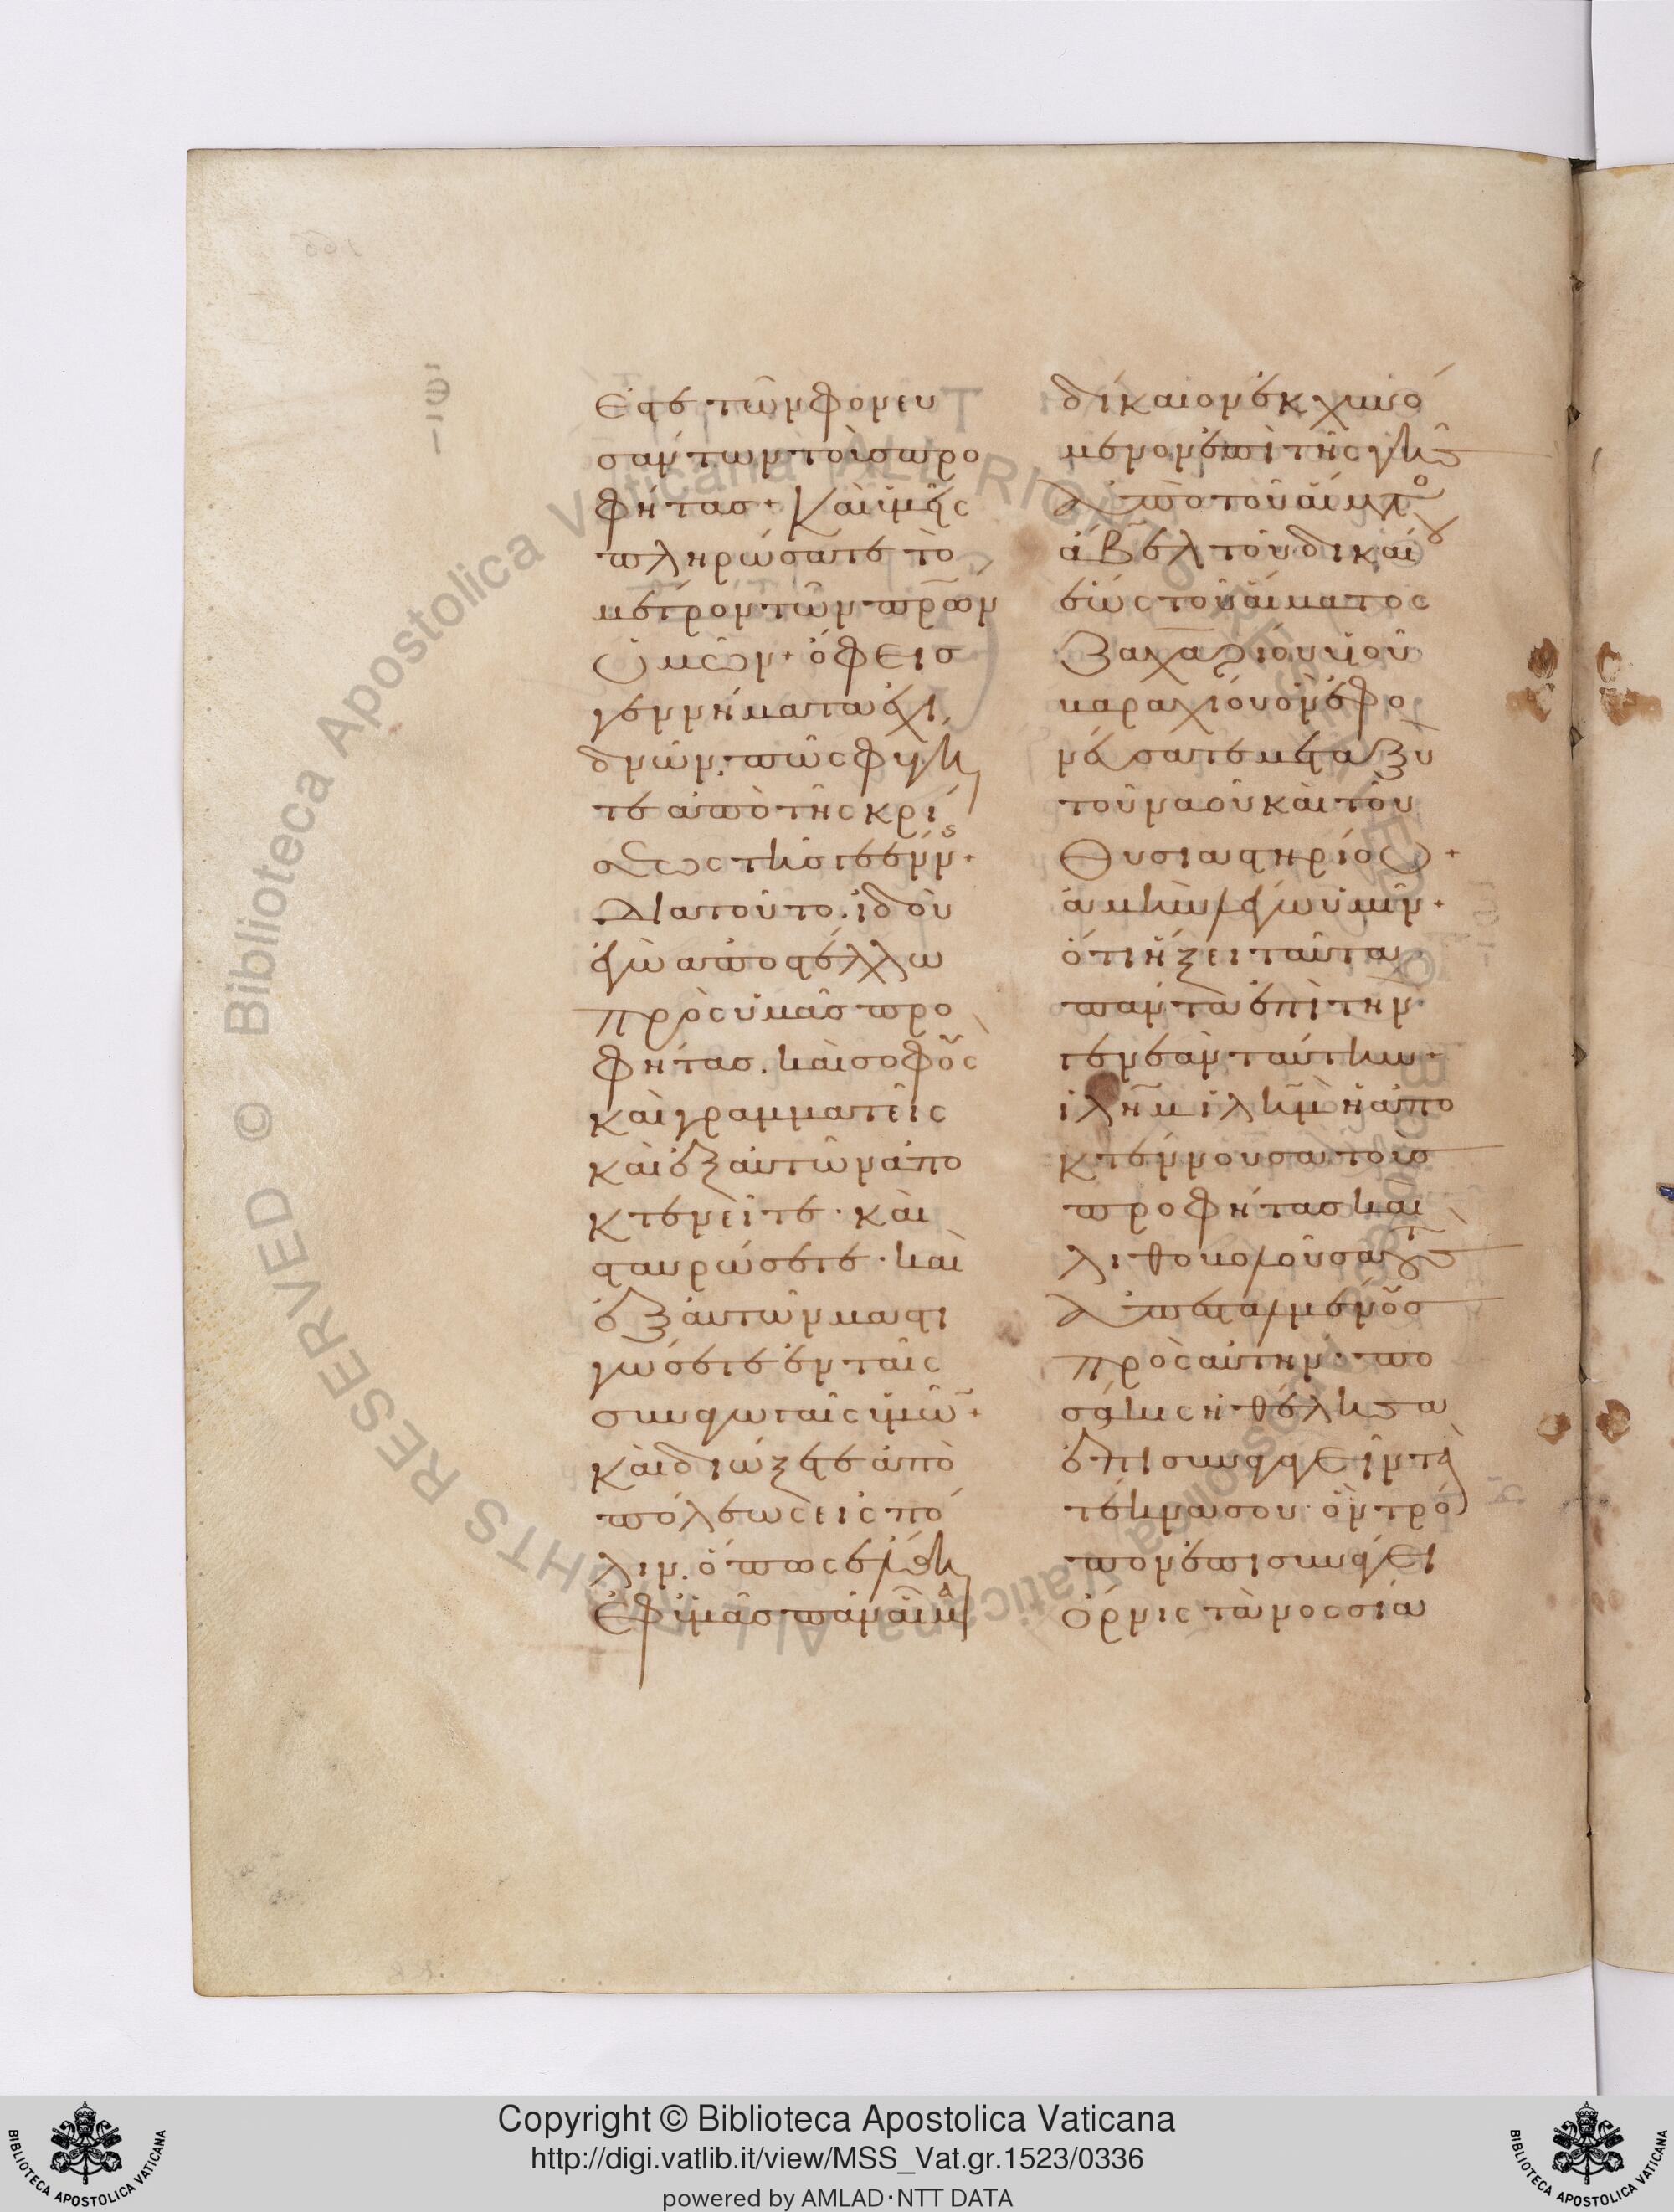 ἐστε τῶν φονευ
σάντων τοὺς προ
φήτας + Καὶ ὑμεῖς
πληρώσατε τὸ
μέτρον τῶν πρ̅ων
ὑμῶν + ὄφεις
γεννήματα ἐχι
δνῶν· πῶς φύγη
τε ἀπὸ τῆς κρί
σεως τῆς γεέννς +
Διατοῦτο· ἰδοὺ
ἐγὼ ἀποστέλλω
πρὸς ὑμᾶς προ
φήτας. καὶ σοφοὺς
καὶ γραμματεῖς
καὶ ἐξ αὐτῶν ἀπο
κτενεῖτε· καὶ
σταυρώσετε· καὶ
ἐξ αὐτῶν μαστι
γώσετε ἐν ταῖς
συναγωγαῖς ὑμῶ̅ +
καὶ διώξετε ἀπὸ
πόλεως εἰς πό
λιν. ὅπως ἔλθη
ἐφ ὑμᾶς πᾶν αἷμα
δίκαιον ἐκχυνό
μενον ἐπὶ τῆς γῆς
ἀπὸ τοῦ αἵματο
ἄβελ τοῦ δικαίου
ἕως τοῦ αἵματος
Ζαχαρίου υἱοῦ
βαραχίου ὃν ἐφο
νεύσατε μεταξὺ
τοῦ ναοῦ καὶ τοῦ
θυσιαστηρίου +
ἀμὴν λέγω ὑμῖν +
ὅτι ἥξει ταῦτα
πάντα ἐπὶ τὴν
γενεὰν ταύτην +
ιλη̅μ ιλη̅μ ἡ ἀπο
κτέννουσα τοὺς
προφήτας καὶ
λιθοβολοῦσα τοὺς
ἀπεσταλμένους
πρὸς αὐτήν· πο
σάκις ἠθέλησα
ἐπισυναγαγεῖν τὰ
τέκνα σου· ὃν τρό
πον ἐπισυνάγει
ὄρνις τὰ νοσσία
Copyright © Biblioteca Apostolica Vaticana
http://digi.vatlib.it/view/MSS_Vat.gr.1523/0336
powered by AMLAD·NTT DATA
BIBLIOTECA APOSTOLICA VATICANA
BIBLIOTECA APOSTOLICA VATICANA
© Biblioteca Apostolica Vaticana ALL RIGHTS RESERVED
© Biblioteca Apostolica Vaticana ALL RIGHTS RESERVED